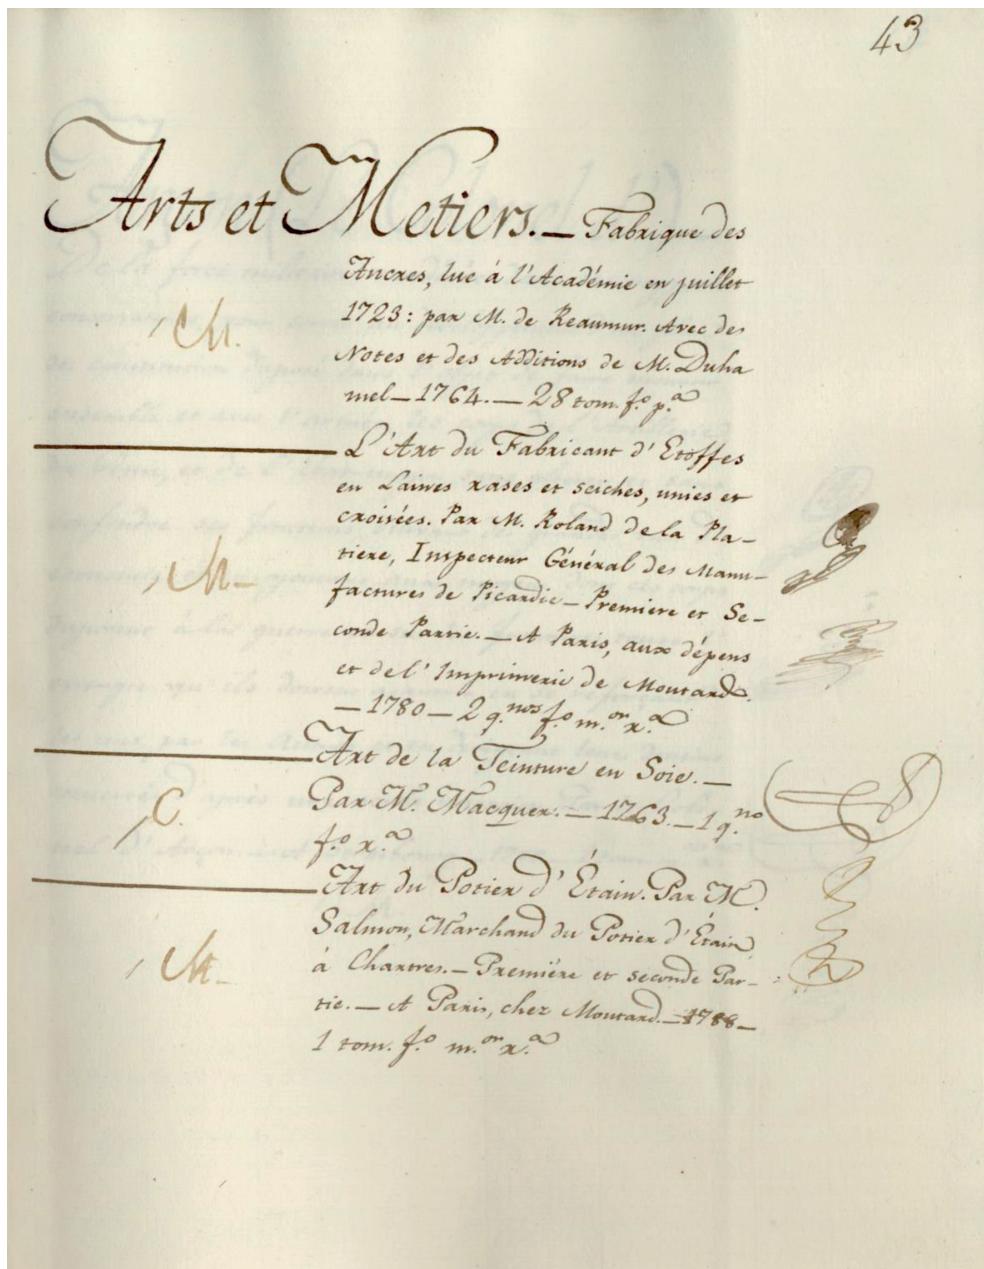 43
Arts et Metiers. — Fabrique des
Ancres, lue à l'Académie en juillet
1723: par M. de Reaumur. Avec des
Notes et des Additions de M. Duha
mel — 1764. — 28 tom. f.º p.ª
M.
— L'Art du Fabricant d'Etoffes
en Laines rases et seiches, unies et
croisées. Par M. Roland de la Pla-
tiere, Inspecteur Général des Manu-
factures de Picardie — Premiere et Se-
conde Partie. — A Paris, aux dépens
et de l'Imprimerie de Moutard.
— 1780 — 2 q.nos f.º m.or r.ª
M —
— Art de la Teinture en Soie. —
Par M. Macquer. — 1763. — 1 q.no
f.º r.ª
C.
— Art du Potier d'Étain. Par M.
Salmon, Marchand du Potier d'Étain
à Chartres. — Premiére et seconde Par-
tie. — A Paris, chez Moutard. — 1788 —
1 tom. f.º m.or r.ª
M —